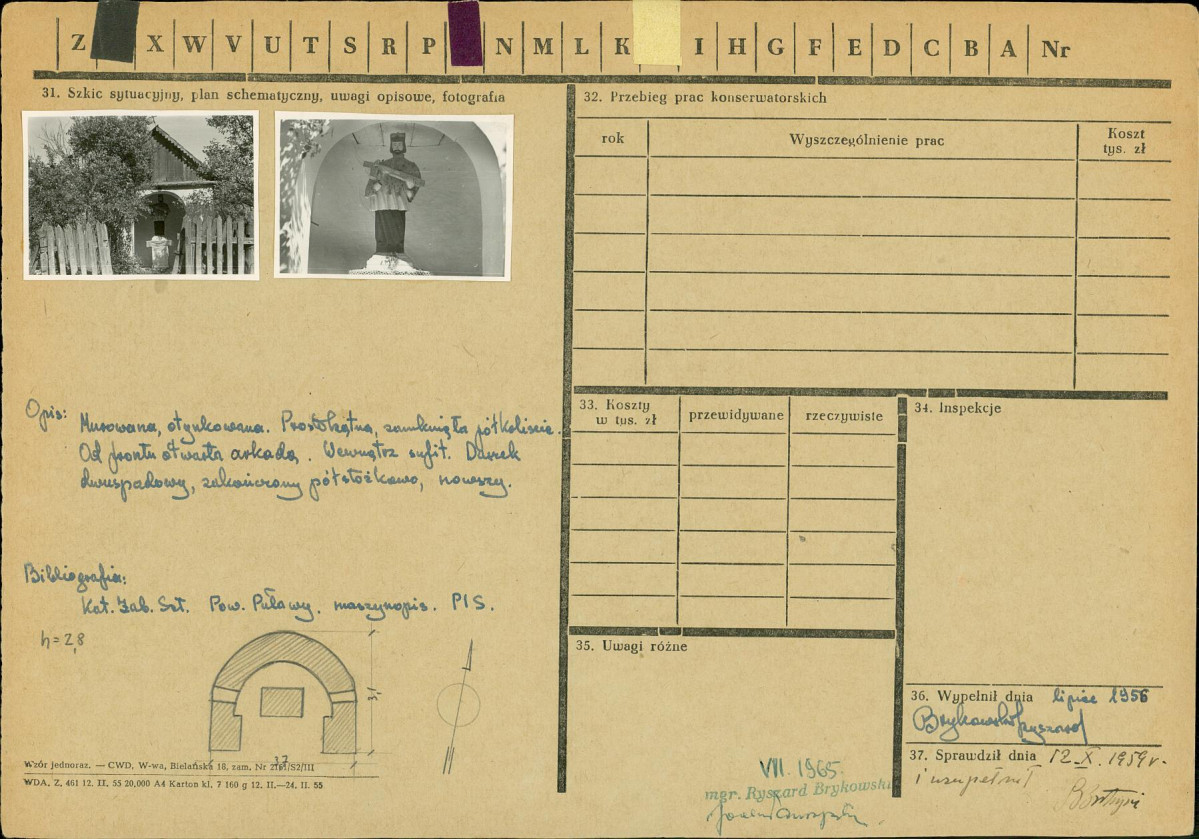 Z X W V U T S R P N M L K I H G F E D C B A Nr
31. Szkic sytuacyjny, plan schematyczny, uwagi opisowe, fotografia
Opis: Murowana, otynkowana. Prostokątna, zamknięta półkoliście.
Od frontu otwarta arkadą. Wewnątrz sufit. Daszek
dwuspadowy, zakończony półstożkowo, nowszy.
Bibliografia:
Kat. Zab. Szt. Pow. Puławy. maszynopis. PIS.
h = 2,8
3,1
3,2
Wzór jednoraz. — CWD, W-wa, Bielańska 18, zam. Nr /S2/III
WDA. Z. 461 12. II. 55 20,000 A4 Karton kl. 7 160 g 12. II.—24. II. 55
32. Przebieg prac konserwatorskich
rok Wyszczególnienie prac Koszt
tys. zł
33. Koszty
w tys. zł
przewidywane rzeczywiste
34. Inspekcje
35. Uwagi różne
36. Wypełnił dnia lipiec 1956
Brykowski Ryszard
37. Sprawdził dnia 12.X.1959 r.
i uzupełnił
VII. 1965.
mgr. Ryszard Brykowski